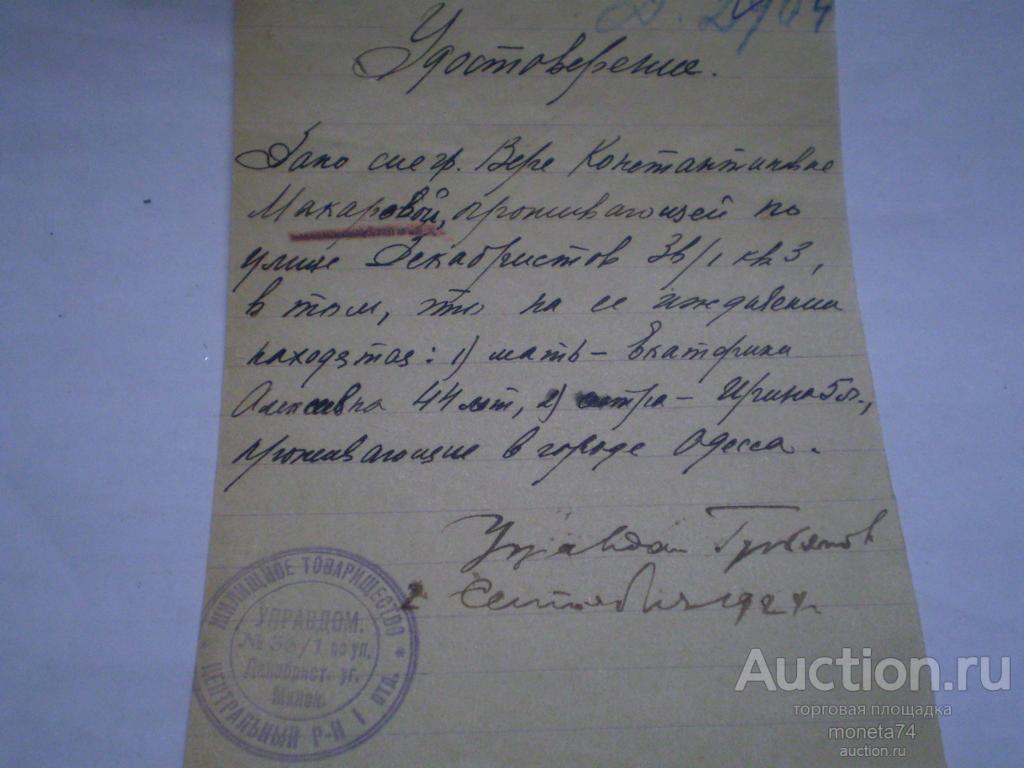 Удостоверение.
Дано сие гр. Вере Константиновне
Макаровой, проживающей по
улице Декабристов 36/1 кв. 3,
в том, что на ее иждивении
находятся: 1) мать – Екатерина
Алексеевна 44 лет, 2) сестра – Ирина 5 л.,
проживающие в городе Одесса.
Управдом
2 Сентября 1924 г.
ЖИЛИЩНОЕ ТОВАРИЩЕСТВО
УПРАВДОМ.
№ 36/1 по ул.
Декабрист. уг.
Минск.
ЦЕНТРАЛЬНЫЙ Р-Н I ОТД.
Auction.ru
торговая площадка
moneta74
auction.ru